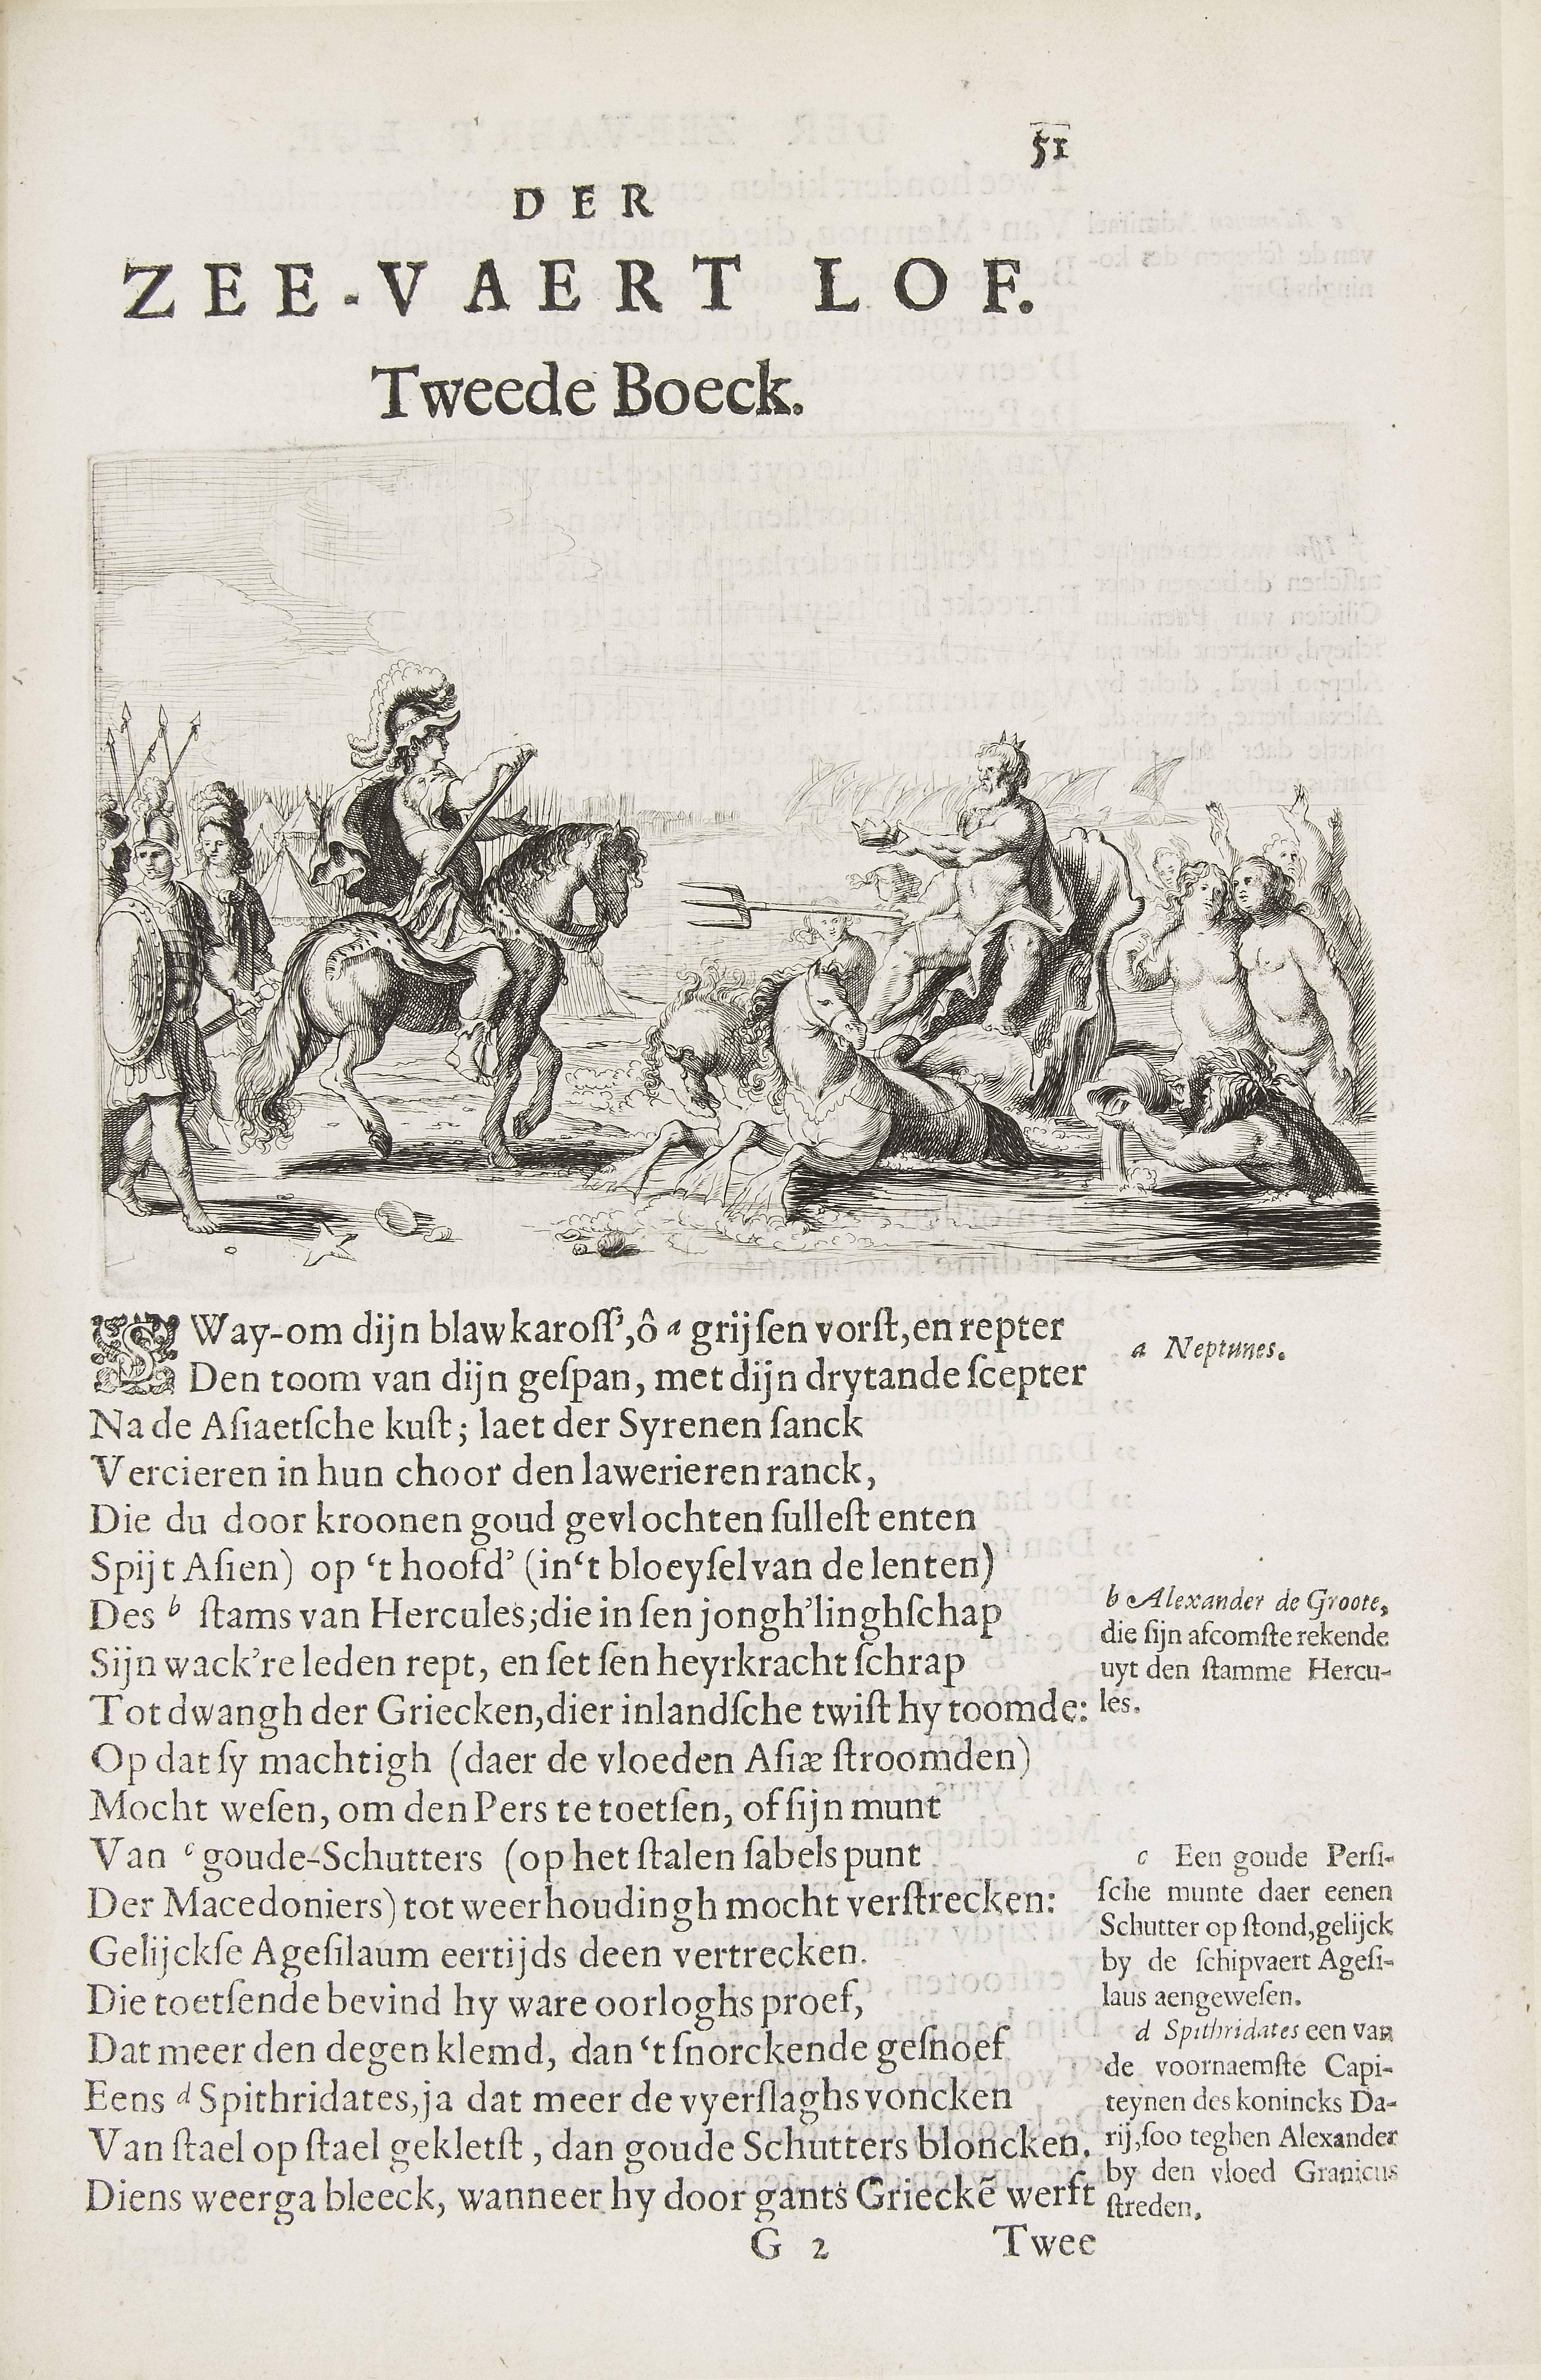 51
DER
ZEE-VAERT LOF.
Tweede Boeck.
SWay-om dijn blaw karoſſ', ô a grijſen vorſt, en repter
Den toom van dijn geſpan, met dijn drytande ſcepter
Na de Aſiaetſche kuſt; laet der Syrenen ſanck
Vercieren in hun choor den lawerieren ranck,
Die du door kroonen goud gevlochten ſulleſt enten
Spijt Aſien) op 't hoofd' (in't bloeyſel van de lenten)
Des b ſtams van Hercules; die in ſen jongh'linghſchap
Sijn wack're leden rept, en ſet ſen heyrkracht ſchrap
Tot dwangh der Griecken, dier inlandſche twiſt hy toomde:
Op dat ſy machtigh (daer de vloeden Aſiæ ſtroomden)
Mocht weſen, om den Pers te toetſen, of ſijn munt
Van c goude-Schutters (op het ſtalen ſabels punt
Der Macedoniers) tot weerhoudingh mocht verſtrecken:
Gelijckſe Ageſilaum eertijds deen vertrecken.
Die toetſende bevind hy ware oorloghs proef,
Dat meer den degen klemd, dan 't ſnorckende geſnoef
Eens d Spithridates, ja dat meer de vyerſlaghs voncken
Van ſtael op ſtael gekletſt, dan goude Schutters bloncken.
Diens weerga bleeck, wanneer hy door gants Grieckē werft
a Neptunes.
b Alexander de Groote,
die ſijn afcomſte rekende
uyt den ſtamme Hercu-
les.
c Een goude Perſi-
ſche munte daer eenen
Schutter op ſtond, gelijck
by de ſchipvaert Ageſi-
laus aengeweſen.
d Spithridates een van
de voornaemſte Capi-
teynen des konincks Da-
rij, ſoo teghen Alexander
by den vloed Granicus
ſtreden.
G 2 Twee